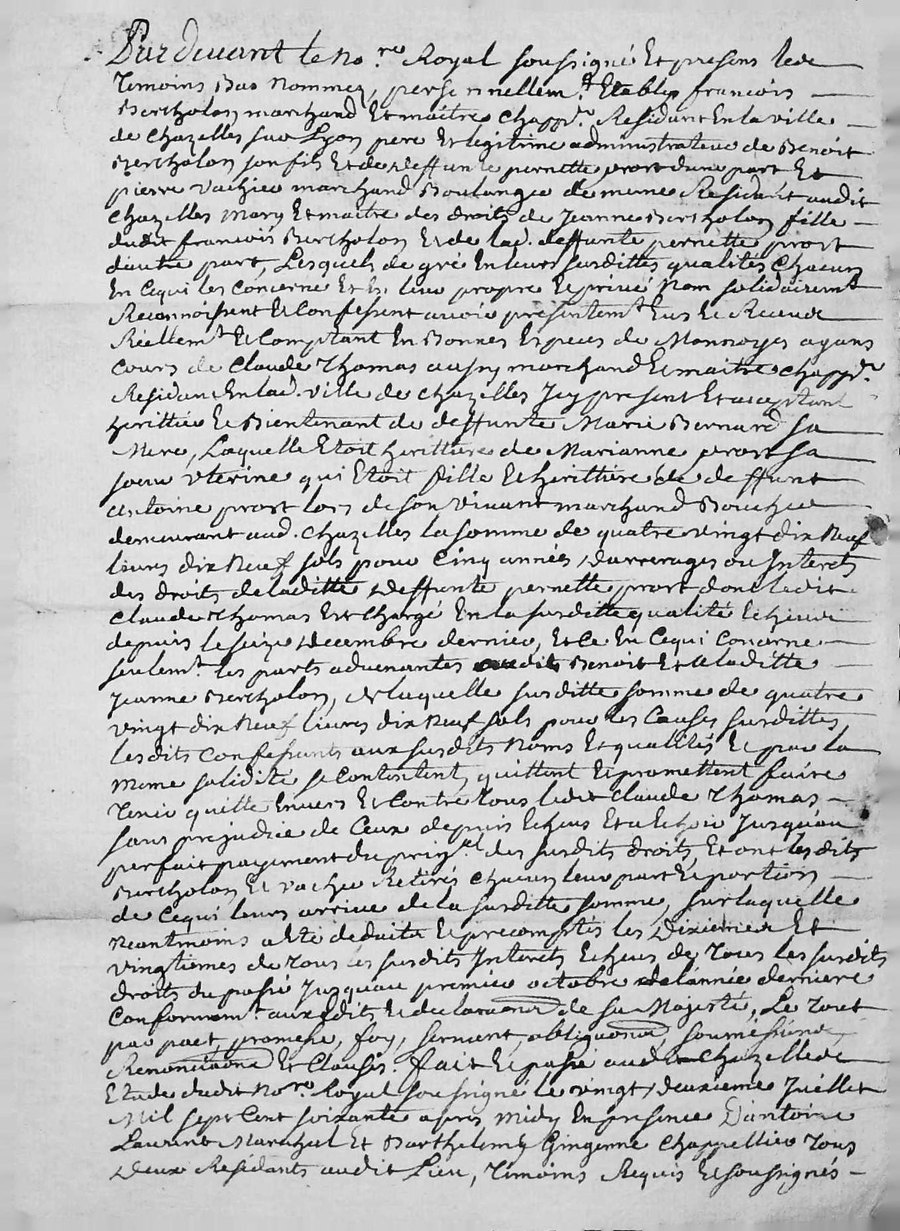 Pardevant le No.re Royal soussigné Et presens les
Temoins Bas Nommez, personnellem.t Etably francois
Bertholon marchand Et maitre chapp.r Residant En la ville
de Chazelles sur Lyon pere Et legitime administrateur de Benoit
Bertholon son fils Et de deffunte pernette prort d'une part Et
pierre vachier marchand Boulanger de meme Residant audit
Chazelles mary Et maitre des droits de Jeanne Bertholon fille
dudit francois Bertholon Et de lad. deffunte pernette prort
d'autre part, Lesquels de gré En leurs susdittes qualités chacun
En cequi les concerne Et En leur propre Et privé Nom solidairem.t
Reconnoissent Et Confessent avoir presentem.t Eus Et Receus
Réellem.t Et Comptant En Bonnes Especes de Monnoyes ayans
cours de Claude Thomas aussy marchand Et maitre chapp.r
Residant En lad. ville de chazelles Icy present Et acceptant
heritier Et Bientenant de deffunte Marie Bernard sa
Mere, Laquelle Etoit heritiere de Marianne prort sa
soeur uterine qui Etoit fille Et heritiere de deffunt
antoine prort lors de son vivant marchand Boucher
demeurant aud. chazelles la somme de quatre vingt dix Neuf
livres dix Neuf sols pour Cinq années d'arrerages ou Interets
des droits de laditte deffunte pernette prort dont ledit
Claude Thomas Est chargé En la susditte qualité Echeus
depuis le seize decembre dernier, Et ce En Cequi Concerne
seulem.t les parts advenantes audit Benoit Et a laditte
Jeanne Bertholon, de laquelle susditte somme de quatre
vingt dix Neuf livres dix Neuf sols pour les Causes susdittes
lesdits Confessants aux susdits Noms Et qualités Et par la
meme solidité se Contentent, quittent Et promettent faire
Tenir quitte Envers Et Contre tous ledit Claude Thomas
sans prejudice de Ceux depuis Echeus Et a Echoir Jusqu'au
parfait payement du prin.al des susdits droits, Et ont lesdits
Bertholon Et vachier Retirés chacun leur part Et portion
de Cequi leurs arrive de la susditte somme, sur laquelle
Neantmoins a Eté deduits Et precomptés les Dixiemes Et
vingtiemes de tous les susdits Interets Echeus de tous les susdits
droits du passé Jusqu'au premier octobre de l'année derniere
Conformem.t aux Edits Et declarations de sa Majesté, Le tout
par pact, promesse, foy, serment, obligations, soumissions,
Renonciations Et Clauses. Fait Et passé aud. Chazelles
Etude dudit No.re Royal soussigné le vingt deuxieme Juillet
Mil sept Cent soixante apres Midy En presence D'antoine
Laurent Marechal Et Barthelemy Gingenne Chappellier tous
Deux Residants audit Lieu, Temoins Requis Et soussignés